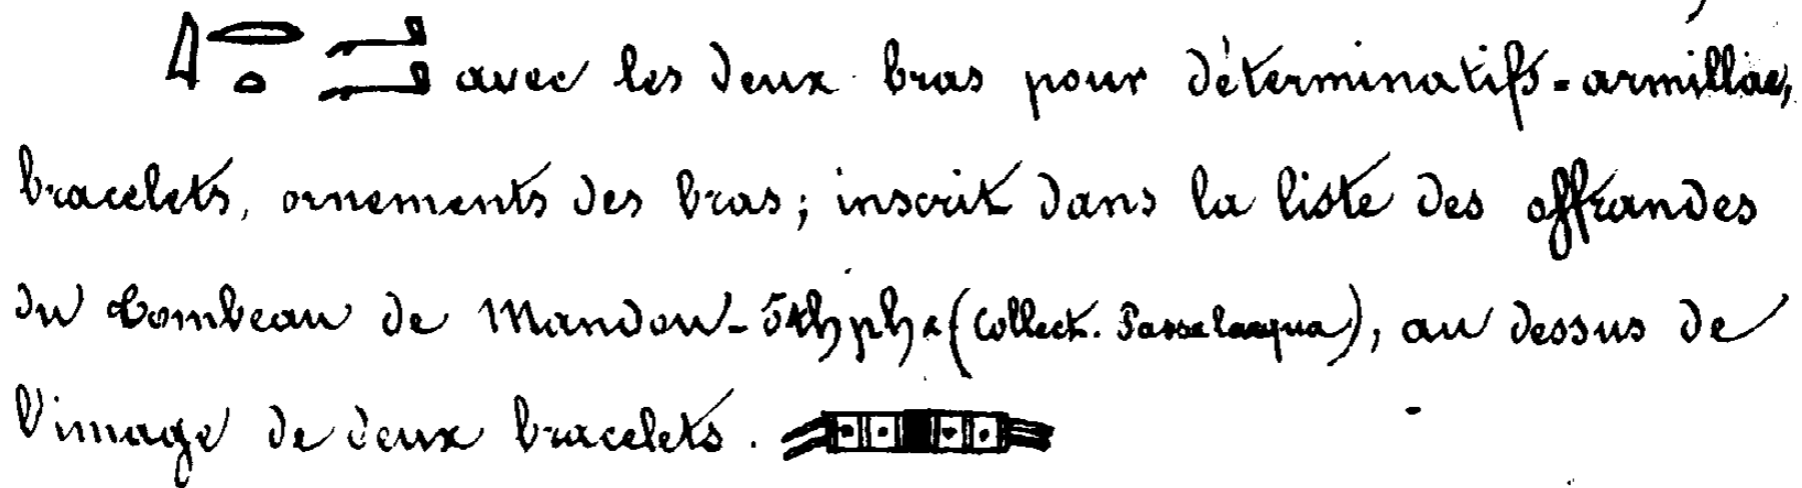 avec les deux bras pour déterminatifs = armillae,
bracelets, ornements des bras; inscrit dans la liste des offrandes
du tombeau de Mandou- (Collect. Passalacqua), au dessus de
l'image de deux bracelets.